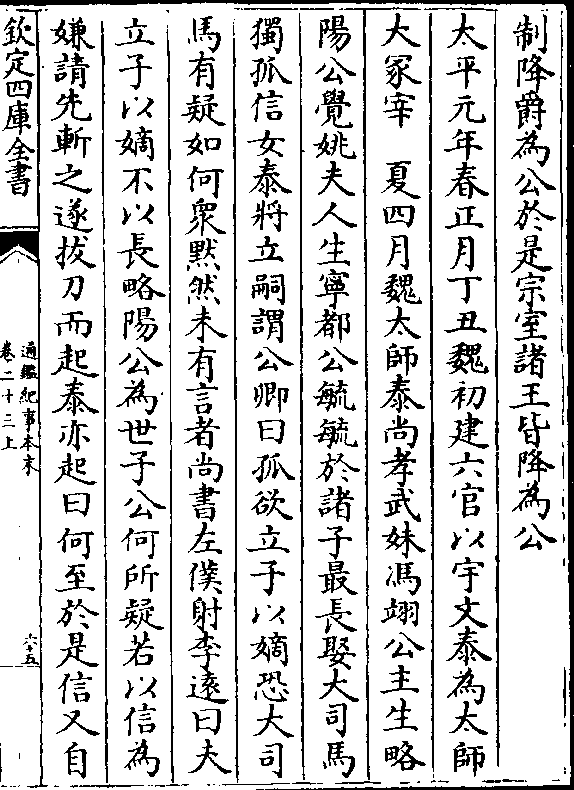 制降爵為公於是宗室諸王皆降為公
太平元年春正月丁丑魏初建六官以宇文泰為太師
大冢宰　夏四月魏太師泰尚孝武妹馮翊公主生略
陽公覺姚夫人生寧都公毓毓於諸子最長娶大司馬
獨孤信女泰將立嗣謂公卿曰孤欲立子以嫡恐大司
馬有疑如何眾默然未有言者尚書左僕射李遠曰夫
立子以嫡不以長略陽公為世子公何所疑若以信為
嫌請先斬之遂拔刀而起泰亦起曰何至於是信又自
欽定四庫全書
通鑑紀事本末
卷二十三上
六十五